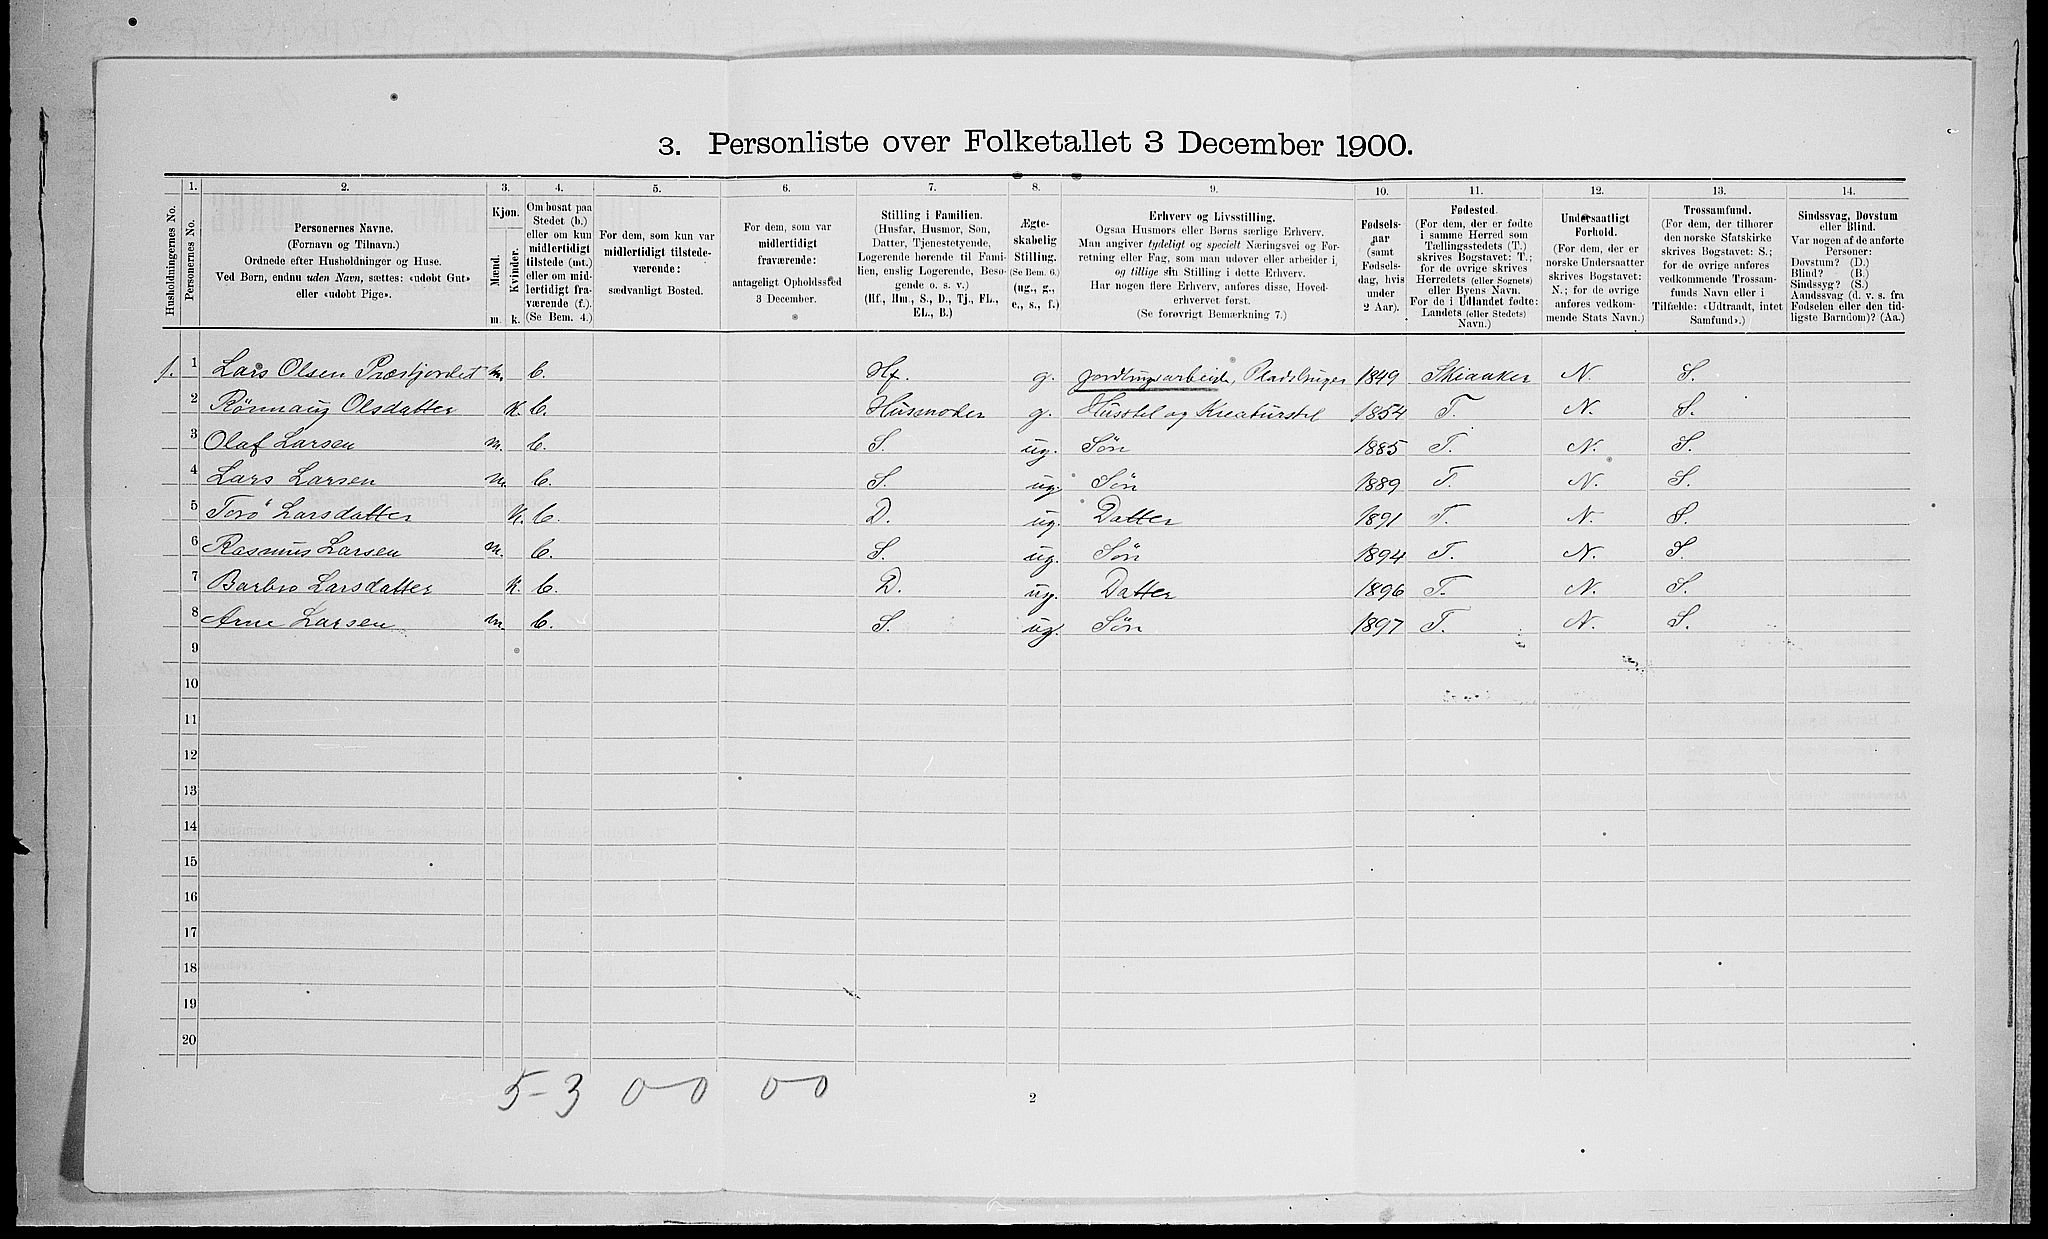 3. Personliste over Folketallet 3 December 1900.
Husholdningernes No.
1.
Personernes No.
2.
Personernes Navne.
(Fornavn og Tilnavn.)
Ordnede efter Husholdninger og Huse.
Ved Børn, endnu uden Navn, sættes: «udøbt Gut»
eller «udøbt Pige».
3.
Kjøn.
Mænd.
Kvinder.
m. k.
4.
Om bosat paa
Stedet (b.)
eller om kun
midlertidigt
tilstede (mt.)
eller om mid-
lertidigt fra-
værende (f.).
(Se Bem. 4.)
5.
For dem, som kun var
midlertidigt tilstede-
værende:
sædvanligt Bosted.
6.
For dem, som var
midlertidigt
fraværende:
antageligt Opholdssted
3 December.
7.
Stilling i Familien.
(Husfar, Husmor, Søn,
Datter, Tjenestetyende,
Logerende hørende til Fami-
lien, enslig Logerende, Besø-
gende o. s. v.)
(Hf., Hm., S., D., Tj., FL.,
EL., B.)
8.
Ægte-
skabelig
Stilling.
(Se Bem. 6.)
(ug., g.,
e., s., f.)
9.
Erhverv og Livsstilling.
Ogsaa Husmors eller Børns særlige Erhverv.
Man angiver tydeligt og specielt Næringsvei og For-
retning eller Fag, som man udøver eller arbeider i,
og tillige sin Stilling i dette Erhverv.
Har nogen flere Erhverv, anføres disse, Hoved-
erhvervet først.
(Se forøvrigt Bemærkning 7.)
10.
Fødsels-
aar
(samt
Fødsels-
dag, hvis
under
2 Aar).
11.
Fødested.
(For dem, der er fødte
i samme Herred som
Tællingsstedets (T.)
skrives Bogstavet: T.;
for de øvrige skrives
Herredets (eller Sognets)
eller Byens Navn.
For de i Udlandet fødte:
Landets (eller Stedets)
Navn.)
12.
Undersaatligt
Forhold.
(For dem, der er
norske Undersaatter
skrives Bogstavet:
N.; for de øvrige
anføres vedkom-
mende Stats Navn.)
13.
Trossamfund.
(For dem, der tilhører
den norske Statskirke
skrives Bogstavet: S.;
for de øvrige anføres
vedkommende Trossam-
funds Navn eller i
Tilfælde: «Udtraadt, intet
Samfund».)
14.
Sindssvag, Døvstum
eller Blind.
Var nogen af de anførte
Personer:
Døvstum? (D.)
Blind? (B.)
Sindssyg? (S.)
Aandssvag (d. v. s. fra
Fødselen eller den tid-
ligste Barndom)? (Aa.)
1. 1 Lars Olsen Præstjordet m. b. Hf. g. Pladsbruger 1849 Skiaaker N. S.
2 Rönnaug Olsdatter k. b. Husmoder g. Husstel og Kreaturstel 1854 T. N. S.
3 Olaf Larsen m. b. S. ug. Søn 1885 T. N. S.
4 Lars Larsen m. b. S. ug. Søn 1889 T. N. S.
5 Torö Larsdatter k. b. D. ug. Datter 1891 T. N. S.
6 Rasmus Larsen m. b. S. ug. Søn 1894 T. N. S.
7 Barbro Larsdatter k. b. D. ug. Datter 1896 T. N. S.
8 Arne Larsen m. b. S. ug. Søn 1897 T. N. S.
9
10
11
12
13
14
15
16
17
18
19
20
5-3 0-0 0-0
2